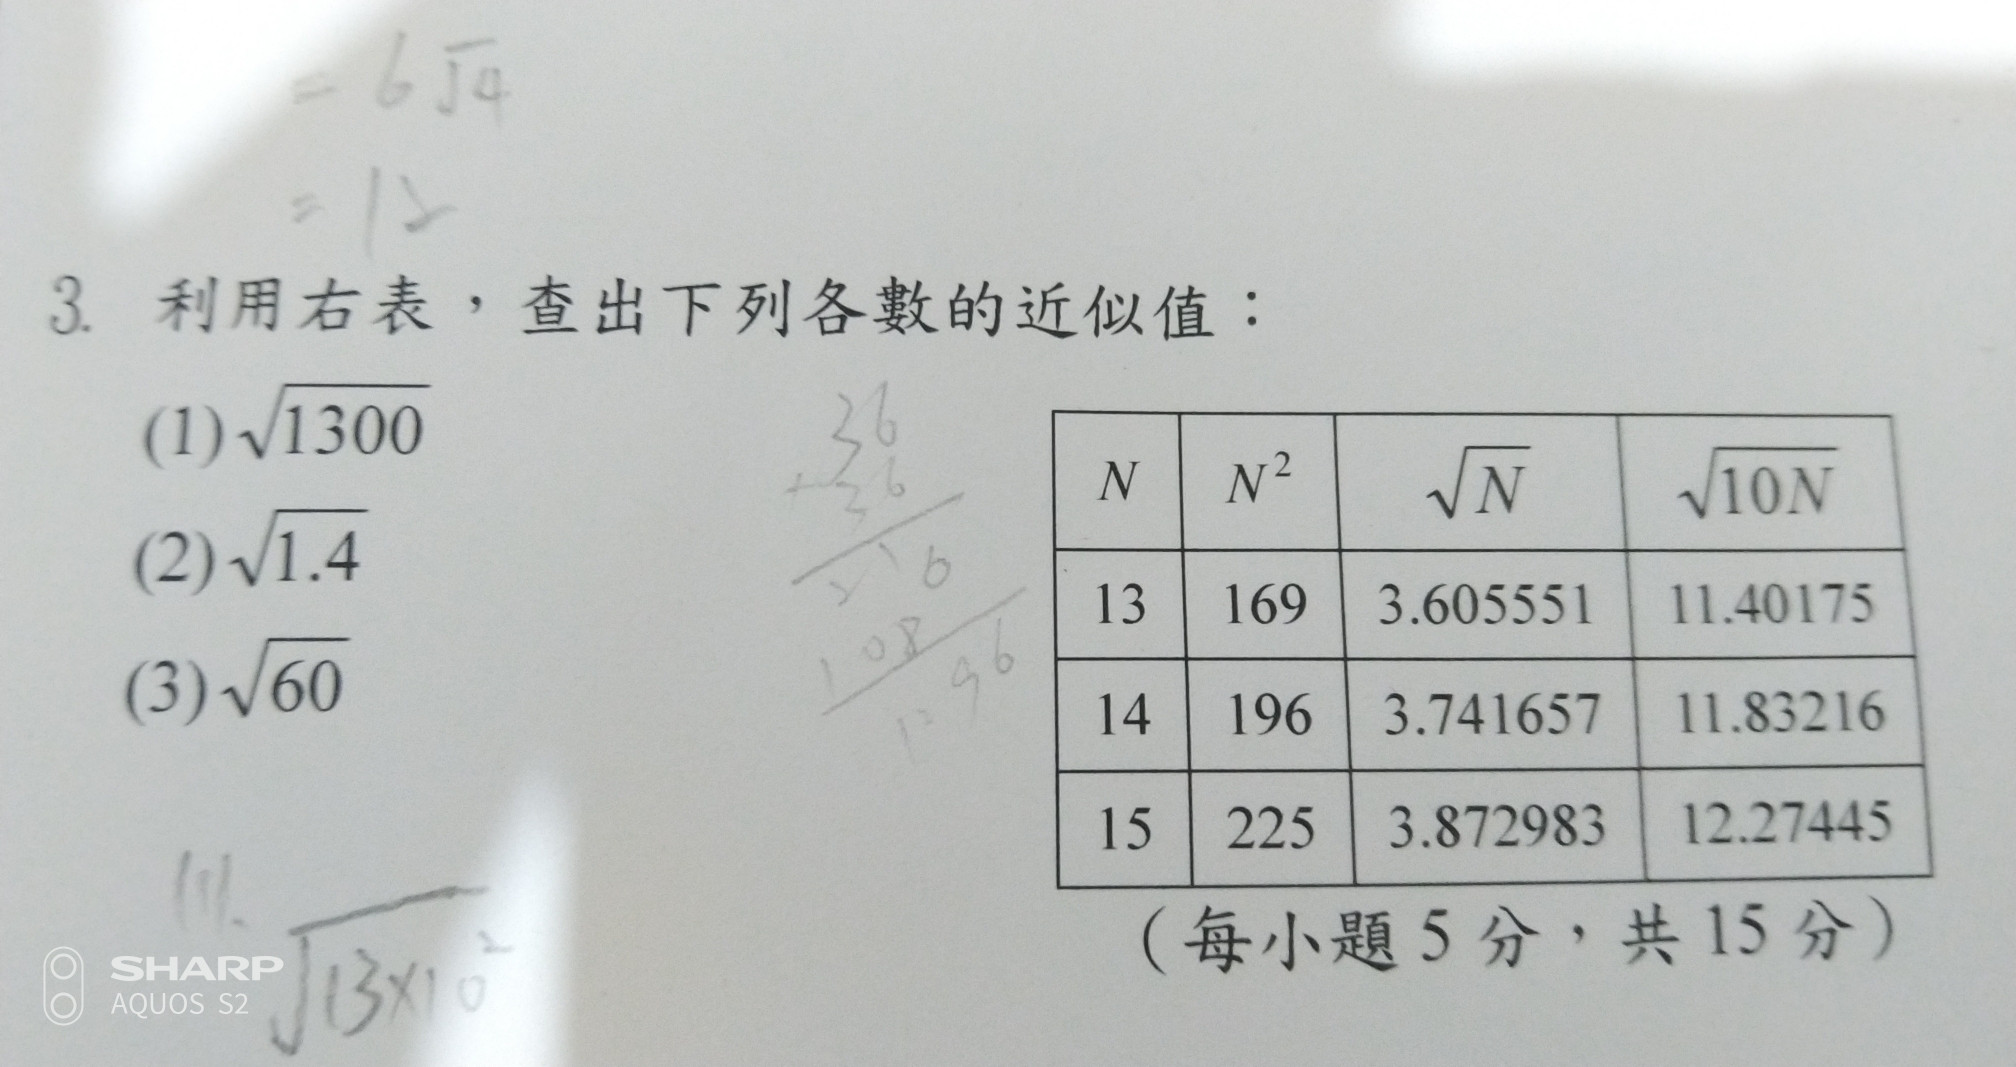 = 6√4
= 12
3. 利用右表，查出下列各數的近似值：
(1)√1300
(2)√1.4
(3)√60
36
36
216
108
1296
N N² √N √10N
13 169 3.605551 11.40175
14 196 3.741657 11.83216
15 225 3.872983 12.27445
（每小題5分，共15分）
(1).
√13×10²
SHARP
AQUOS S2